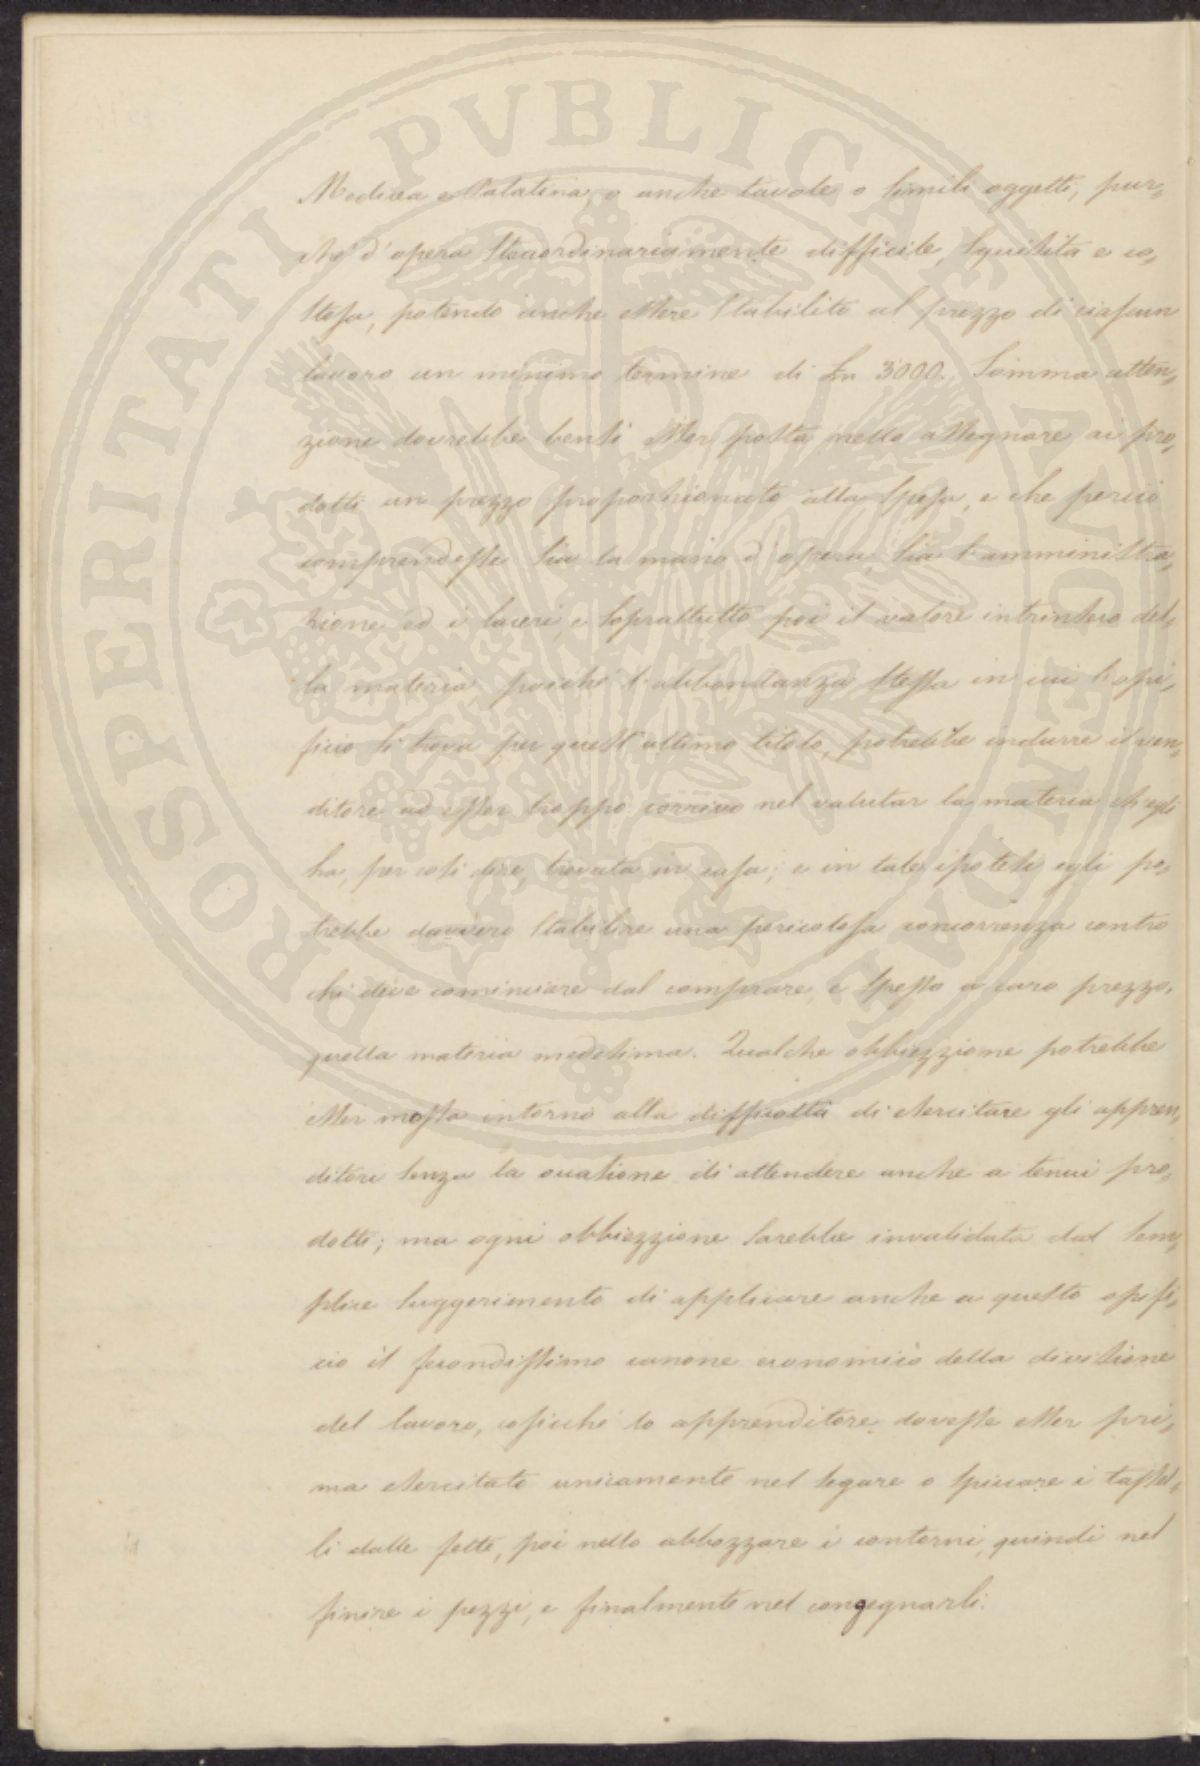 PROSPERITATI PVBLICAE AVGENDAE
Medicea e Palatina, o anche tavole o simili oggetti, pur=
chè d'opera straordinariamente difficile, squisita e co=
stosa, potendo anche essere stabilito al prezzo di ciascun
lavoro un minimo termine di Ln 3000. Somma atten=
zione dovrebbe bensì esser posta nello assegnare ai pro=
dotti un prezzo proporzionato alla spesa, e che perciò
comprendesse sia la mano d'opera, sia l'amministra=
zione ed i lavori, e soprattutto poi il valore intrinseco del=
la materia, poichè l'abbondanza stessa in cui l'opi=
ficio si trova per quest'ultimo titolo, potrebbe indurre il ven=
ditore ad esser troppo corrivo nel valutar la materia ch'egli
ha, per così dire, trovata in casa; e in tale ipotesi egli po=
trebbe davvero stabilire una pericolosa concorrenza contro
chi deve cominciare dal comprare, e spesso a caro prezzo,
quella materia medesima. Qualche obbiezzione potrebbe
esser mossa intorno alla difficoltà di esercitare gli appren=
ditori senza la occasione di attendere anche a tenui pro=
dotti; ma ogni obbiezzione sarebbe invalidata dal sem=
plice suggerimento di applicare anche a questo opifi=
cio il fecondissimo canone economico della divisione
del lavoro, cosicchè lo apprenditore dovesse esser pri=
ma esercitato unicamente nel segare o spiccare i tassel=
li dalle fette, poi nello abbozzare i contorni, quindi nel
finire i pezzi, e finalmente nel congegnarli.